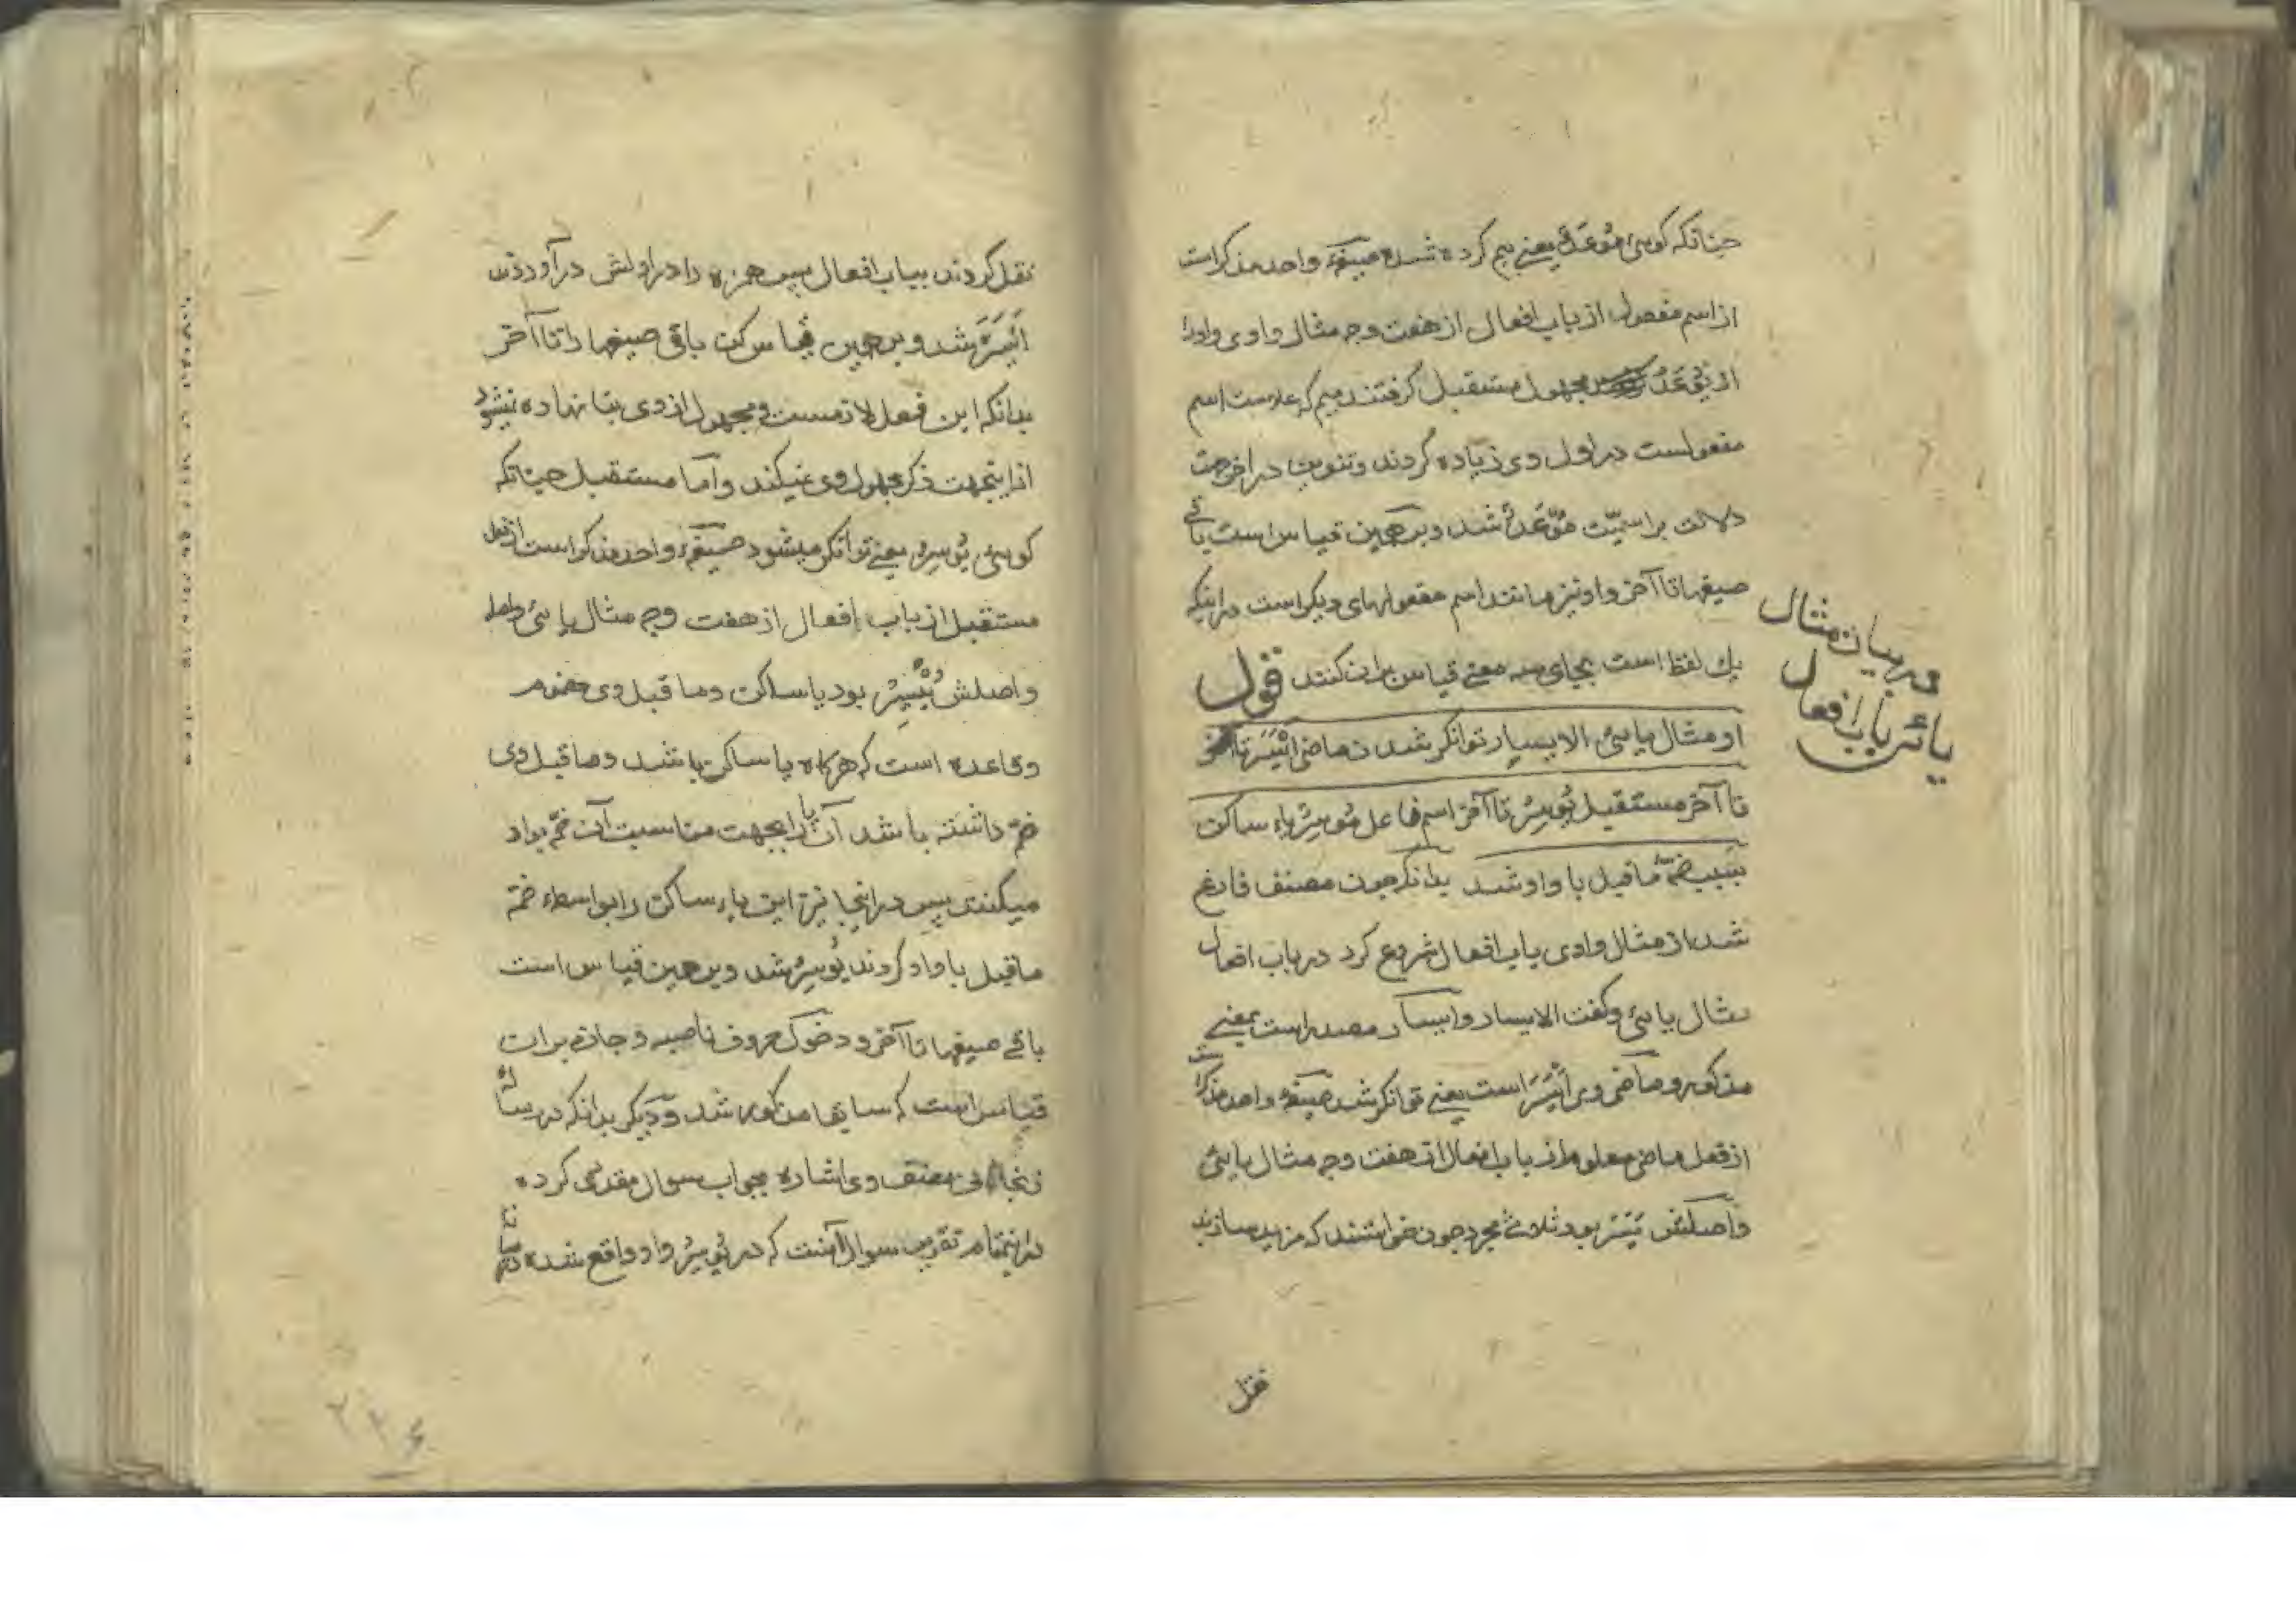 چنانکه کوئی مُوْعَدٌ یعنی بیم کرده شده صیغهٔ واحد مذکر است
از اسم مفعول از باب افعال از هفت وجه مثال واوی واورا
از یُوْعَدُ مجهول مستقبل گرفتند میم که علامت اسم
مفعولست در اول وی زیاده کردند وتنوین در آخر جهت
دلالت بر اسمیّت مُوْعَدٌ شد وبرهمین قیاس است باقی
صیغها تا آخر واو نیز مانند اسم مفعولهای دیگر است در اینکه
یک لفظ است بجای سه معنی قیاس بران کنند قول
او مثال یائی الایسار توانگر شدن ماضی اَیْسَرَ تا آخر
تا آخر مستقبل یُوسِرُ تا آخر اسم فاعل مُوسِرٌ یاء ساکن
بسبب ضمهٔ ماقبل با واو شد بدانکه چون مصنف فارغ
شد از مثال واوی باب افعال شروع کرد در باب افعال
مثال یائی وگفت الایسار وایسار مصدر است بمعنی
مذکور وماضی وی اَیْسَرَ است یعنی توانگر شد صیغهٔ واحد مذکر است
از فعل ماضی معلوم از باب افعال از هفت وجه مثال یائی
واصلش یَسَرَ بود ثلاثی مجرد چون خواستند که مزید سازند
نقل
در بیان مثال
یائی باب افعال
نقل کردند بباب افعال پس همزه را در اولش در آوردند
اَیْسَرَ شد وبرهمین قیاس کن باقی صیغها را تا آخر
بدانکه این فعل لازمست ومجهول از وی بنا نهاده نیشود
از اینجهت ذکر مجهول وی نمیکند وامّا مستقبل چنانکه
کوئی یُوسِرُ یعنی توانگر میشود صیغهٔ واحد مذکر است از فعل
مستقبل از باب افعال از هفت وجه مثال یائی واورا
واصلش یُیْسِرُ بود یا ساکن وماقبل وی مضموم
وقاعده است که هرگاه یا ساکن باشد وماقبل وی
ضمّ داشته باشد آن یا را بجهت مناسبت آن ضمّ بواو
میکنند پس در اینجا نیز این یاء ساکن را بواسطهء ضمّ
ماقبل با واو کردند یُوسِرُ شد وبرهمین قیاس است
باقی صیغها تا آخر ودخول حروف ناصبه وجازمه بران
قیاس است که سابقا مذکور شد ودیگر بدانکه در رساله
زنجانی مصنف وی اشاره بجواب سوال مقدری کرده
در اینمقام تقریر سوال آنست که در یُوسِرُ واو واقع شده
۲۲۶